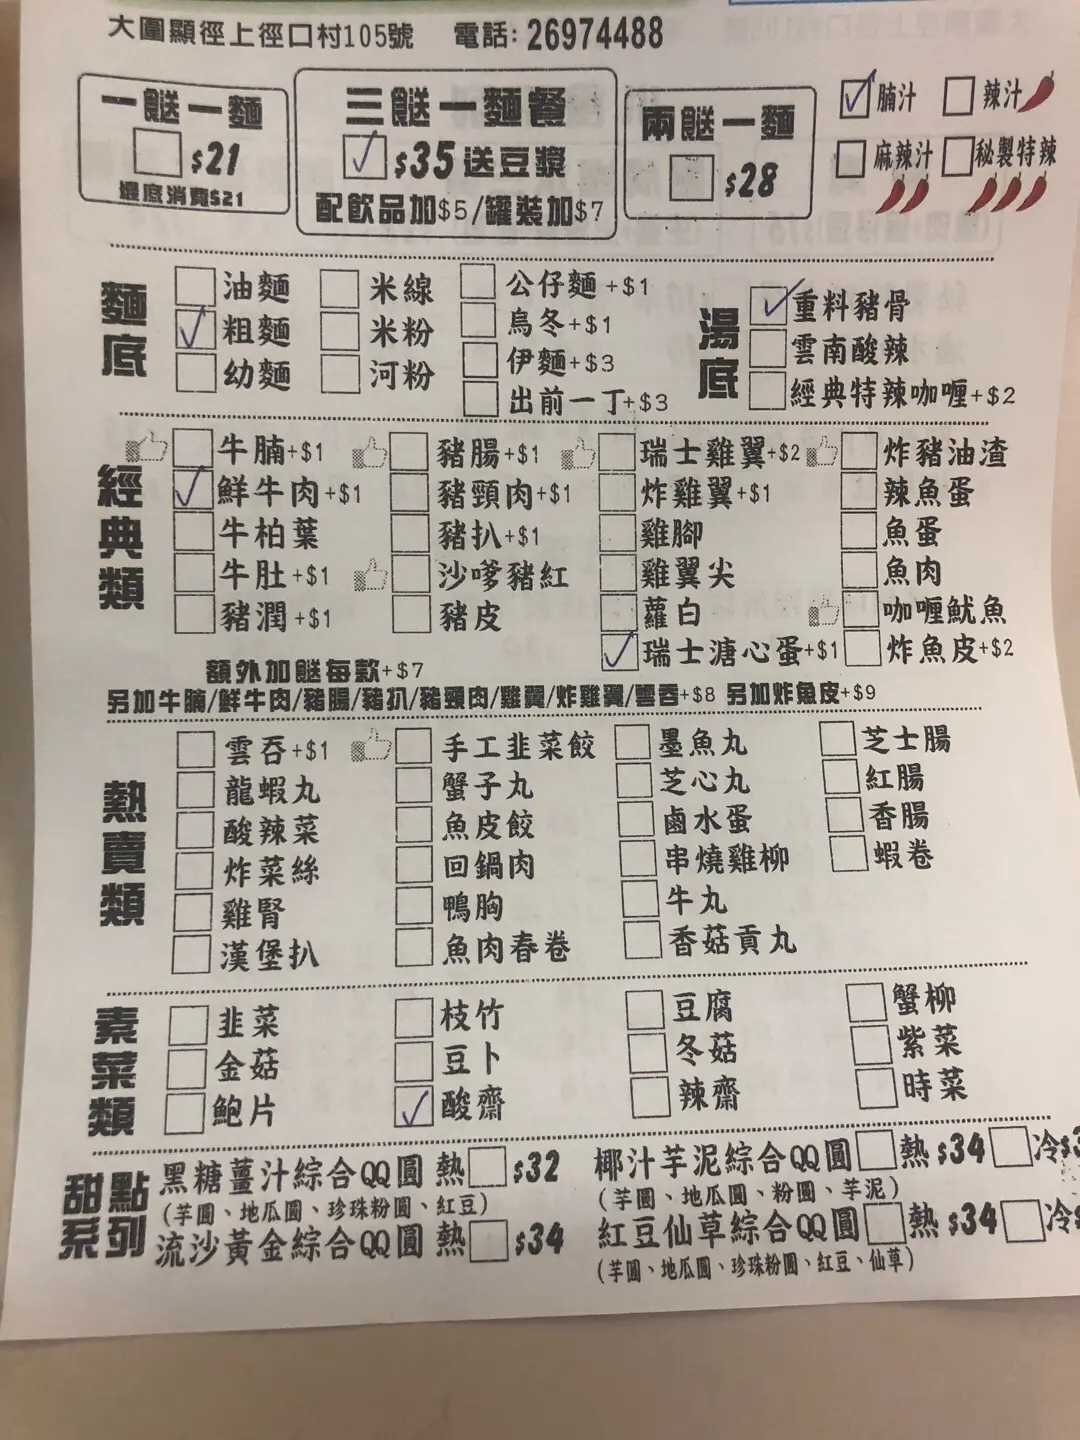 大圍顯徑上徑口村105號 電話: 26974488
一餸一麵
$21
最底消費$21
三餸一麵餐
$35 送豆漿
配飲品加$5/罐裝加$7
兩餸一麵
$28
腩汁 辣汁
麻辣汁 秘製特辣
麵底
油麵 米線 公仔麵+$1
粗麵 米粉 烏冬+$1
幼麵 河粉 伊麵+$3
出前一丁+$3
湯底
重料豬骨
雲南酸辣
經典特辣咖喱+$2
經典類
牛腩+$1 豬腸+$1 瑞士雞翼+$2 炸豬油渣
鮮牛肉+$1 豬頸肉+$1 炸雞翼+$1 辣魚蛋
牛柏葉 豬扒+$1 雞腳 魚蛋
牛肚+$1 沙嗲豬紅 雞翼尖 魚肉
豬潤+$1 豬皮 蘿白 咖喱魷魚
瑞士溏心蛋+$1 炸魚皮+$2
額外加餸每款+$7
另加牛腩/鮮牛肉/豬腸/豬扒/豬頸肉/雞翼/炸雞翼/雲吞+$8 另加炸魚皮+$9
熱賣類
雲吞+$1 手工韭菜餃 墨魚丸 芝士腸
龍蝦丸 蟹子丸 芝心丸 紅腸
酸辣菜 魚皮餃 鹵水蛋 香腸
炸菜絲 回鍋肉 串燒雞柳 蝦卷
雞腎 鴨胸 牛丸
漢堡扒 魚肉春卷 香菇貢丸
素菜類
韭菜 枝竹 豆腐 蟹柳
金菇 豆卜 冬菇 紫菜
鮑片 酸齋 辣齋 時菜
甜點系列
黑糖薑汁綜合QQ圓 熱 $32
(芋圓、地瓜圓、珍珠粉圓、紅豆)
流沙黃金綜合QQ圓 熱 $34
椰汁芋泥綜合QQ圓 熱 $34 冷$3
(芋圓、地瓜圓、粉圓、芋泥)
紅豆仙草綜合QQ圓 熱 $34 冷$
(芋圓、地瓜圓、珍珠粉圓、紅豆、仙草)